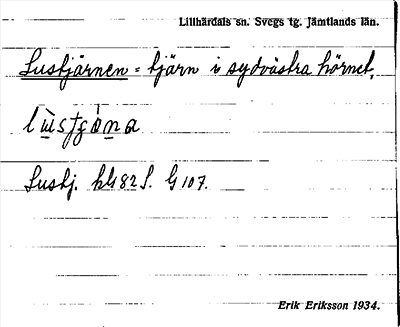 Lillhärdals sn. Svegs tg. Jämtlands län.
Lustjärnen = tjärn i sydvästra hörnet,
Lustj.
G 107.
Erik Eriksson 1934.